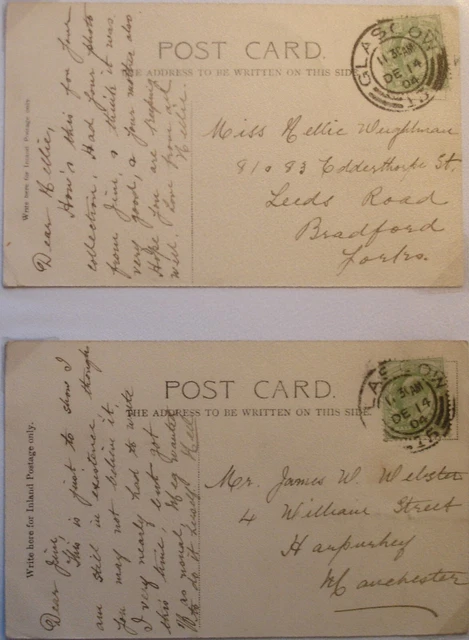 POST CARD.
THE ADDRESS TO BE WRITTEN ON THIS SIDE
Write here for Inland Postage only.
Dear Nellie,
How's this for your
collection. Had your photo
from Jim, & think it was
very good, & your mother also.
Hope you are keeping
well. Love from
Nellie
GLASGOW
11.30AM
DE 14
04
Miss Nellie Weightman
81 & 83 Edderthorpe St.
Leeds Road
Bradford
Yorks.
POST CARD.
THE ADDRESS TO BE WRITTEN ON THIS SIDE
Write here for Inland Postage only.
Dear Jim,
This is just to show I
am still in existence though
you may not believe it.
I very nearly had to write
this time, but got
as usual, Meg wanted
to do it herself. Nell
GLASGOW
11.30AM
DE 14
04
Mr. James W. Webster
4 William Street
Harpurhey
Manchester